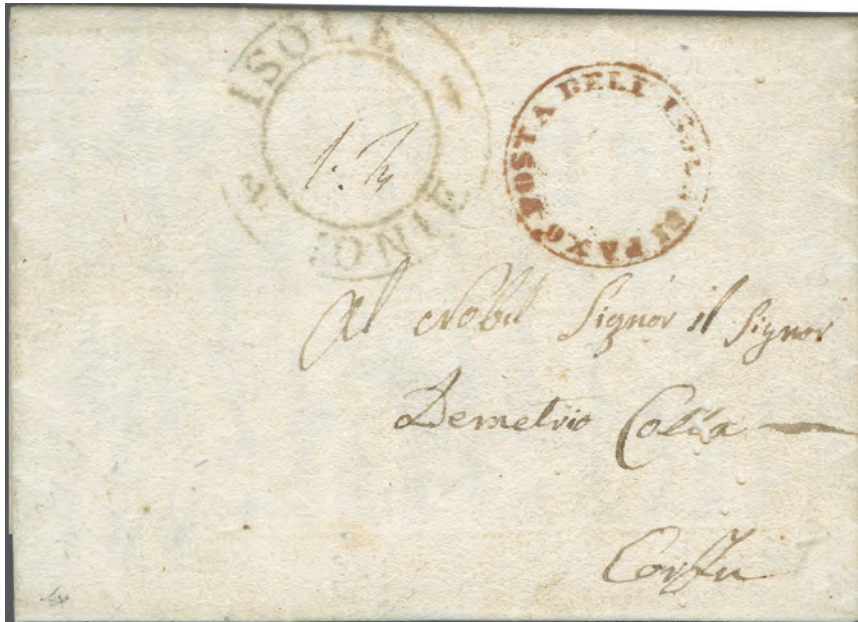 ISOLE
IONIE
POSTA DELL ISOLA DI PAXO
Al Nobil Signor il Signor
Demetrio
Corfu